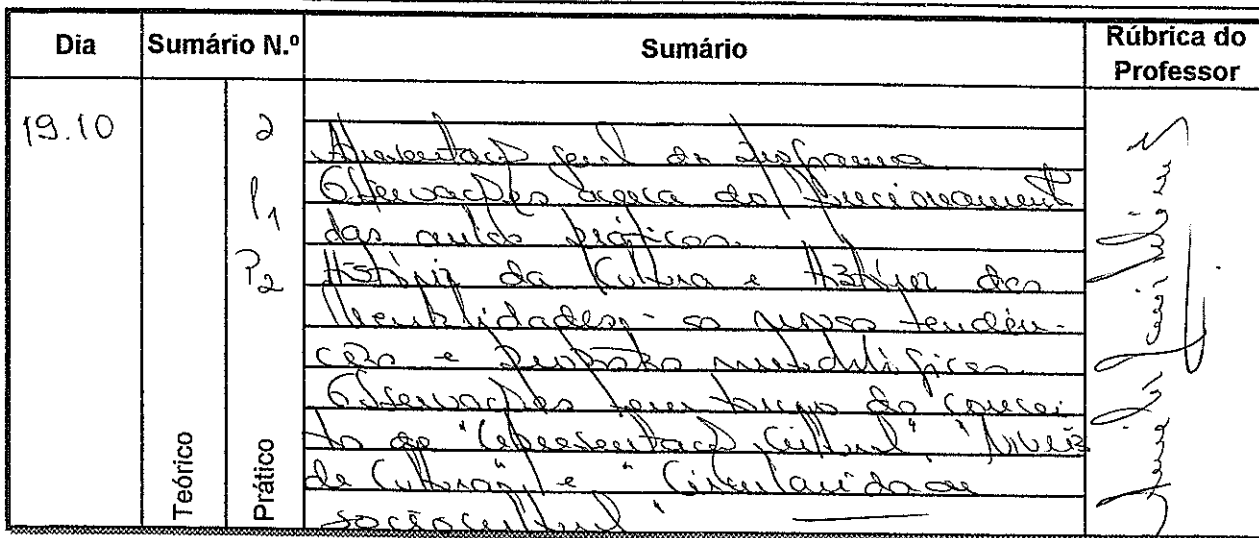 Dia Sumário N.º Sumário Rúbrica do Professor
19.10 2
Apresentação geral do programa
P1 Observações acerca do funcionamento
das aulas práticas.
P2 História da Cultura e História das
Mentalidades - as novas tendên-
cias e propostas metodológicas
Observações em torno do concei
to de "representação cultural" "níveis
de cultura" e "Circularidade
sociocultural"
Teórico
Prático